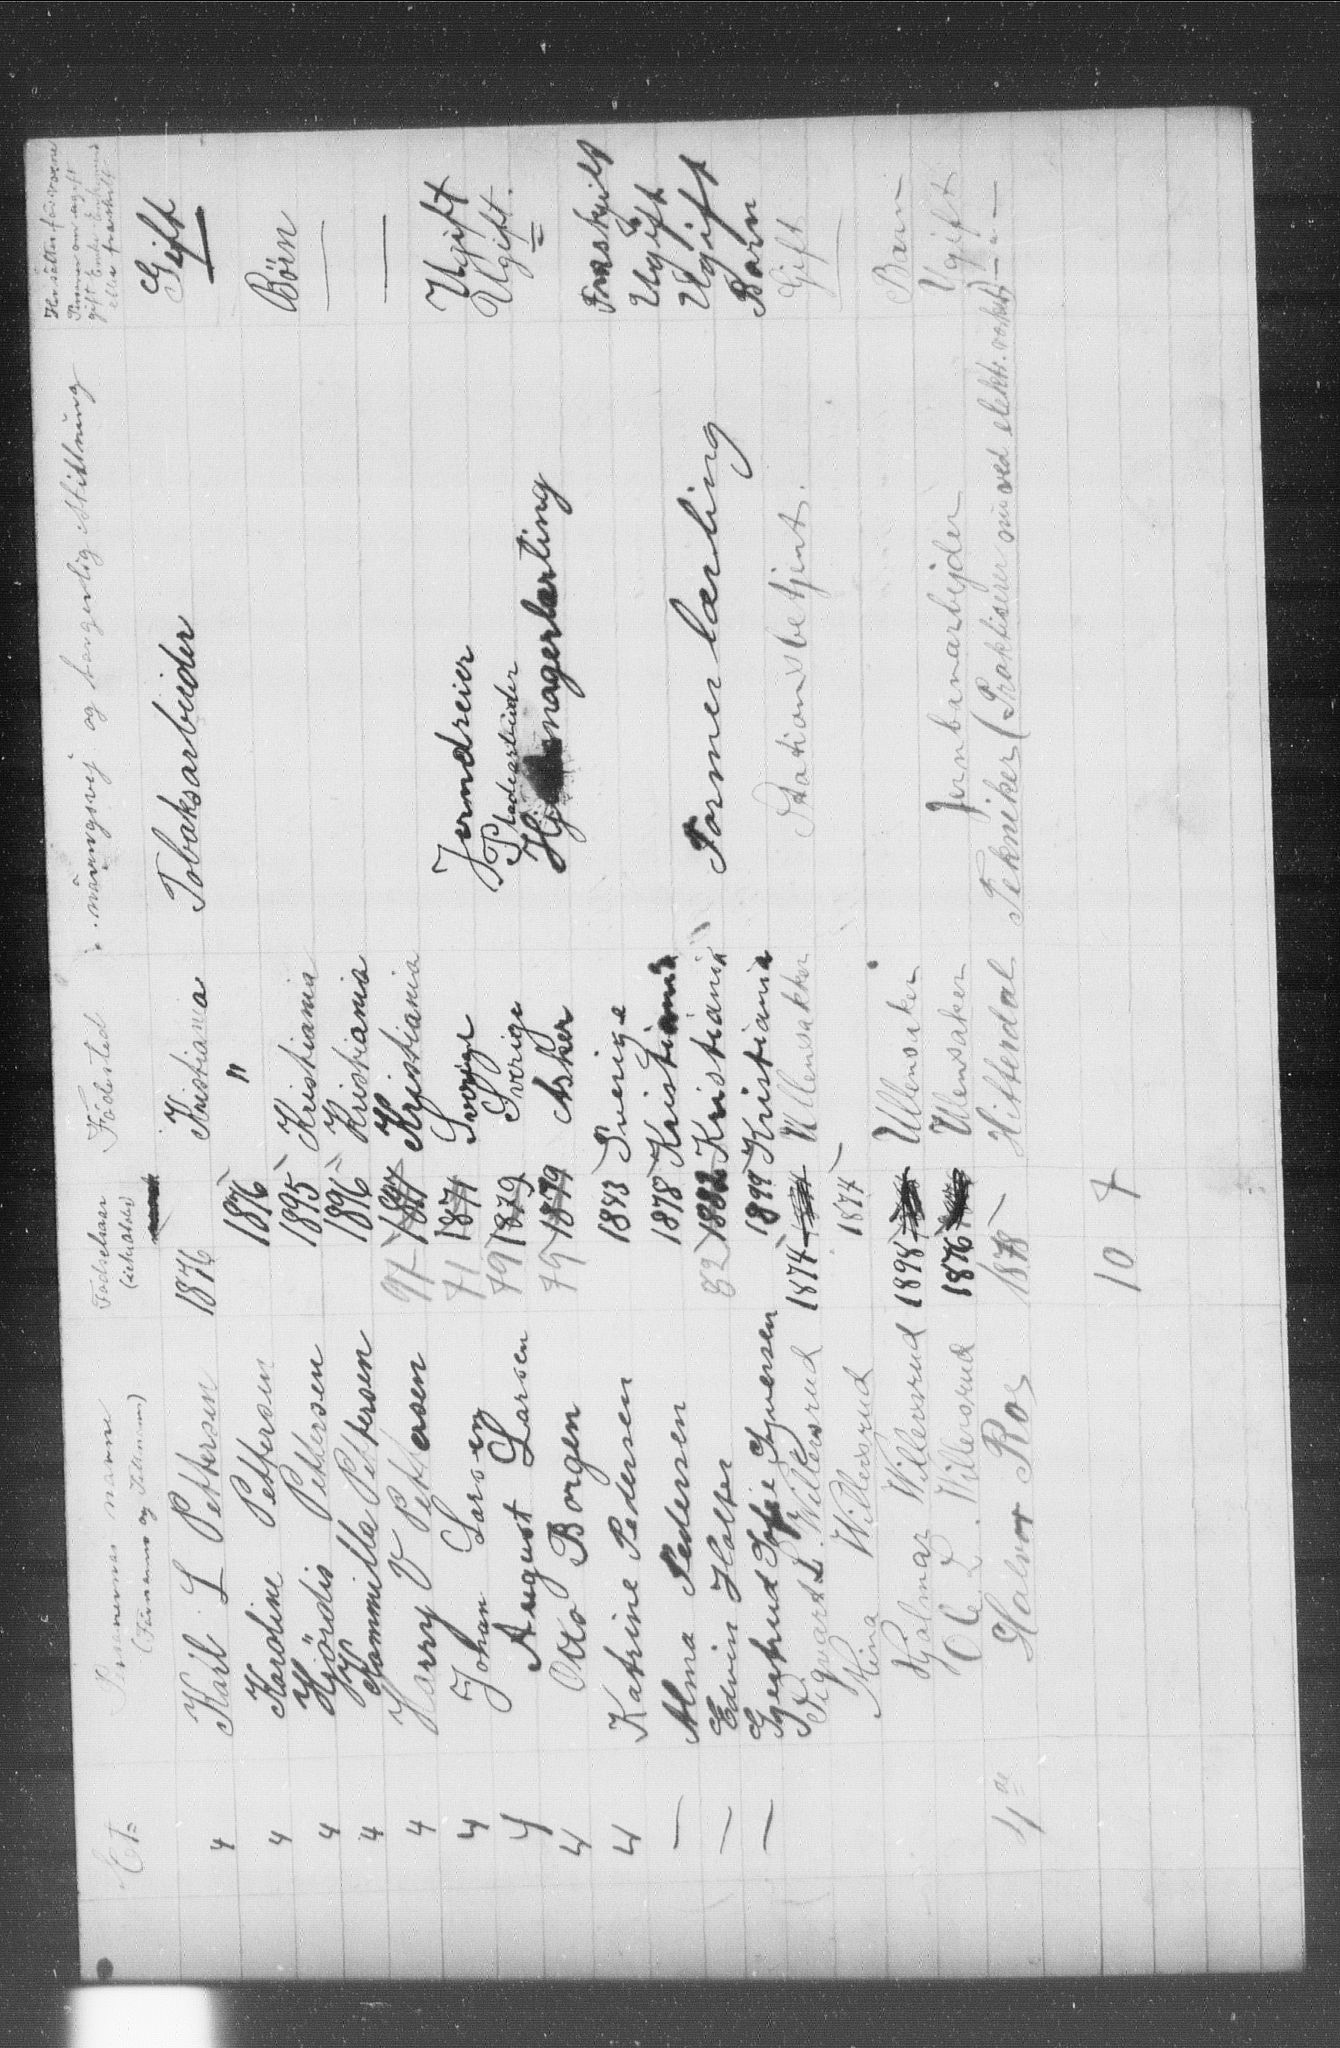 Et= Personernes navne (Fornavne og Tilnavn) Fødselsaar Fødested næringsvej og borgerlig stilling
4 Karl L Pettersen 1876 Kristiania Tobaksarbeider Gift
4 Karoline Pettersen 1876 "
4 Hjördis Pettersen 1895 Kristiania Börn
4 Kammilla Pettersen 1896 Kristiania —
4 Harry V Pettersen 97 1897 Kristiania —
4 Johan Larsen 71 1871 Sverige Jerndreier Ugift
4 August Larsen 79 1879 Sverige Pladearbeider Ugift.
4 Otto Borgen 79 1879 Asker =
4 Katrine Pedersen 1843 Sverige Fraskilt
— Alma Pedersen 1878 Kristiania Ugift
— Edvin Holter 82 1882 Kristiania Formerlærling Ugift
— Gjertrud Sofie Syversen 1899 Kristiania Barn
Sigvart L. Willersrud 1874 Ullensakker Stationsbetjent. Gift
Stina Willersrud 1874 — —
Hjalmar Willersrud 1898 Ullensaker Barn
Ole L. Willersrud 1876 Ulensaker Jernbanarbejder Ugift
4de Halvor Roe 1878 Hitterdal Tekniker (Praktiserer nu ved elektr. — " —
10 7